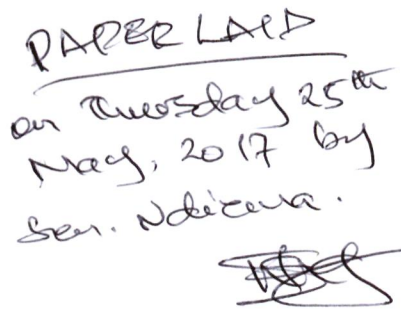 PAPER LAID
on Thursday 25th
May, 2017 by
Sen. Ndizeva.